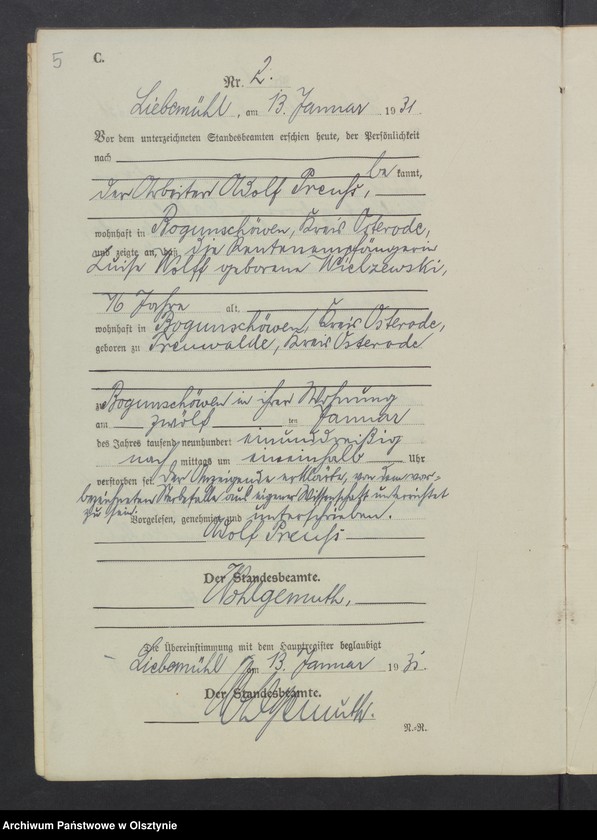 5
C.
Nr. 2.
Liebemühl, am 13. Januar 1931
Vor dem unterzeichneten Standesbeamten erschien heute, der Persönlichkeit
nach
be kannt,
der Arbeiter Adolf Preuß,
wohnhaft in Bogunschöwen, Kreis Osterode,
und zeigte an, daß die Rentenempfängerin
Luise Wolff geborene Wielzewski,
76 Jahre alt,
wohnhaft in Bogunschöwen, Kreis Osterode,
geboren zu Kreis Osterode
zu Bogunschöwen in ihrer Wohnung
am zwölf ten Januar
des Jahres tausend neunhundert einunddreißig
nach mittags um eineinhalb Uhr
verstorben sei. Der Anzeigende erklärte, von dem vor-
bezeichneten Sterbefalle aus eigener Wissenschaft unterrichtet
zu sein.
Vorgelesen, genehmigt und unterschrieben.
Adolf Preuß
Der Standesbeamte.
Wohlgemuth,
Die Übereinstimmung mit dem Hauptregister beglaubigt
Liebemühl am 13. Januar 1931.
Der Standesbeamte.
Wohlgemuth.
N.-R.
Archiwum Państwowe w Olsztynie